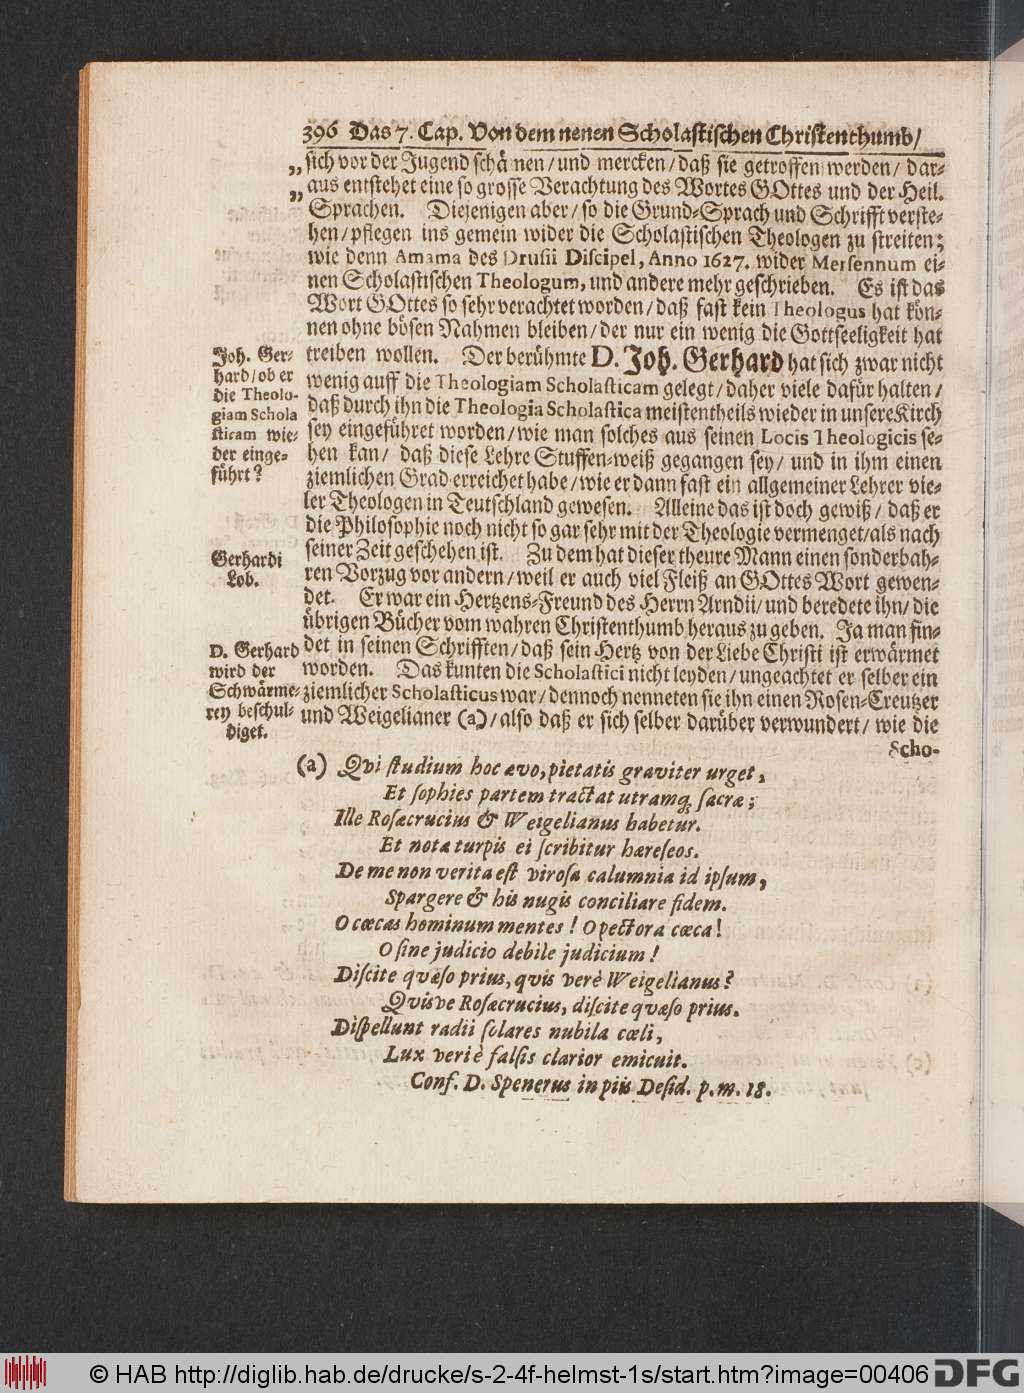 396 Das 7. Cap. Von dem neuen Scholastischen Christenthumb/
„ sich vor der Jugend schämen/ und mercken/ daß sie getroffen werden/ dar-
„ aus entstehet eine so grosse Verachtung des Wortes GOttes und der Heil.
Sprachen. Diejenigen aber/ so die Grund-Sprach und Schrifft verste-
hen/ pflegen ins gemein wider die Scholastischen Theologen zu streiten;
wie denn Amama des Drusii Discipel, Anno 1627. wider Mersennum ei-
nen Scholastischen Theologum, und andere mehr geschrieben. Es ist das
Wort GOttes so sehr verachtet worden/ daß fast kein Theologus hat kön-
nen ohne bösen Nahmen bleiben/ der nur ein wenig die Gottseeligkeit hat
treiben wollen. Der berühmte D. Joh. Gerhard hat sich zwar nicht
wenig auff die Theologiam Scholasticam gelegt/ daher viele dafür halten/
daß durch ihn die Theologia Scholastica meistentheils wieder in unsere Kirch
sey eingeführet worden/ wie man solches aus seinen Locis Theologicis se-
hen kan/ daß diese Lehre Stuffen-weiß gegangen sey/ und in ihm einen
ziemlichen Grad erreichet habe/ wie er dann fast ein allgemeiner Lehrer vie-
ler Theologen in Teutschland gewesen. Alleine das ist doch gewiß/ daß er
die Philosophie noch nicht so gar sehr mit der Theologie vermenget/ als nach
seiner Zeit geschehen ist. Zu dem hat dieser theure Mann einen sonderbah-
ren Vorzug vor andern/ weil er auch viel Fleiß an GOttes Wort gewen-
det. Er war ein Hertzens-Freund des Herrn Arndii/ und beredete ihn/ die
übrigen Bücher vom wahren Christenthumb heraus zu geben. Ja man fin-
det in seinen Schrifften/ daß sein Hertz von der Liebe Christi ist erwärmet
worden. Das kunten die Scholastici nicht leyden/ ungeachtet er selber ein
ziemlicher Scholasticus war/ dennoch nenneten sie ihn einen Rosen-Creutzer
und Weigelianer (a)/ also daß er sich selber darüber verwundert/ wie die
Scho-
Joh. Ger-
hard/ ob er
die Theolo-
giam Schola
sticam wie-
der einge-
führt?
Gerhardi
Lob.
D. Gerhard
wird der
Schwärme-
rey beschul-
diget.
(a) Qvi studium hoc ævo, pietatis graviter urget,
Et sophies partem tractat utramq; sacræ;
Ille Rosæcrucius & Weigelianus habetur.
Et nota turpis ei scribitur hæreseos.
De me non verita est virosa calumnia id ipsum,
Spargere & his nugis conciliare fidem.
O cœcas hominum mentes! O pectora cœca!
O sine judicio debile judicium!
Discite qvæso prius, qvis verè Weigelianus?
Qvisve Rosæcrucius, discite qvæso prius.
Dispellunt radii solares nubila cœli,
Lux veri è falsis clarior emicuit.
Conf. D. Spenerus in piis Desid. p. m. 18.
© HAB http://diglib.hab.de/drucke/s-2-4f-helmst-1s/start.htm?image=00406
DFG